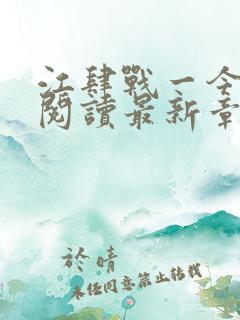 江肆戰一全
閱讀最新章
於晴
未经同意禁止转载